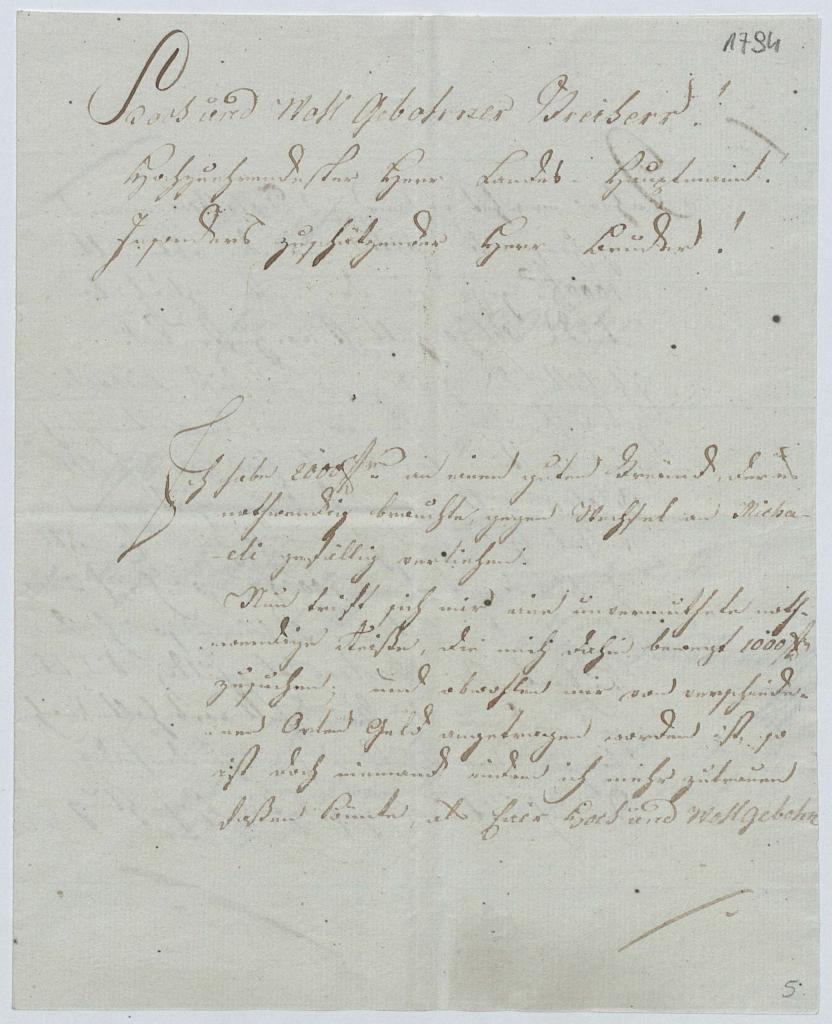 1794
Hoch und Wohl Gebohrner Freiherr!
Hochzuehrendester Herr Landes-Hauptmann.
Insonders zuschätzender Herr Bruder!
Ich habe 2000 an einen guten Freünd, der es
nothwendig brauchte, gegen Wechsel an Micha-
-eli gefällig verliehen.
Nun trift sich mir eine unvermuthete noth-
wendige Reiße, die mich dahin bewegt 1000
zusuchen; und obwohlen mir von verschiede-
nen Orten Geld angetragen worden ist, so
ist doch niemand zu deme ich mehr zutrauen
faßen könnte, als Euer Hoch und Wohlgebohrn
5.